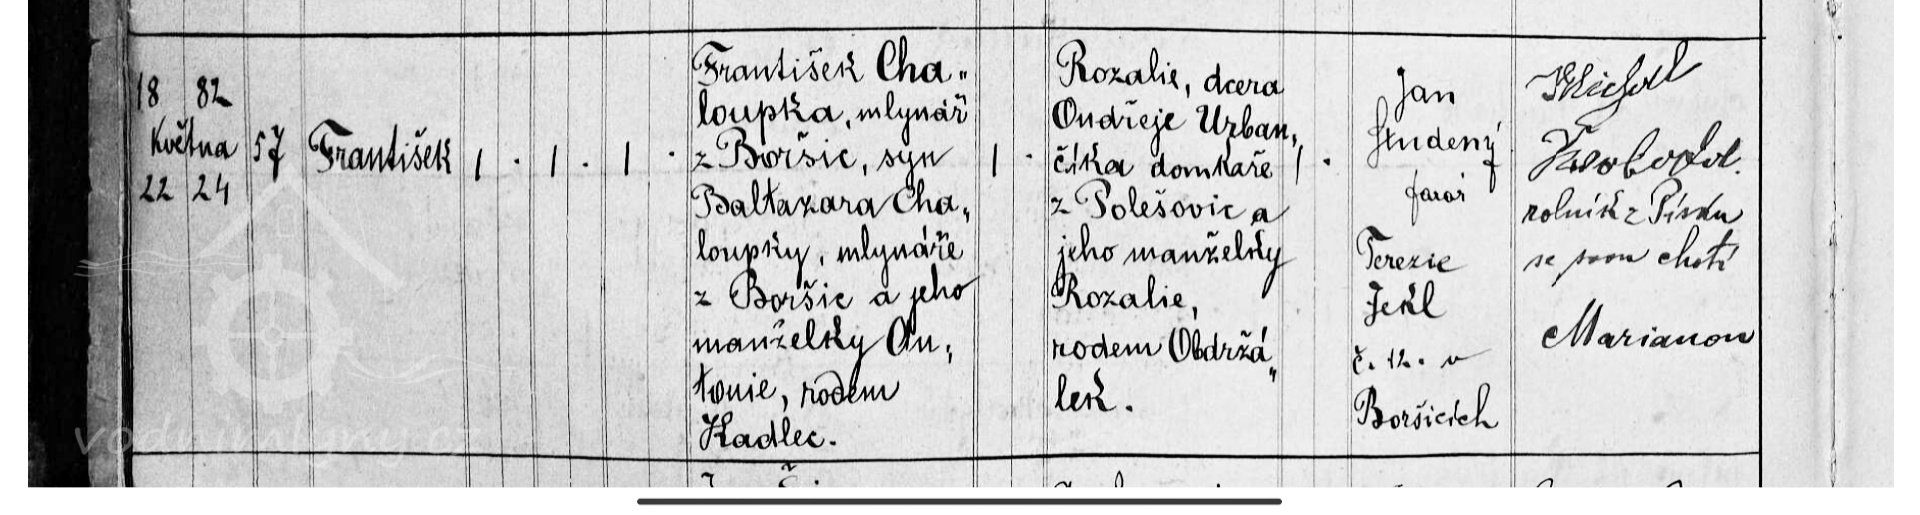 18 82
Května
22 24
57
František
1 . 1 . 1 .
František Cha„
loupka, mlynář
z Boršic, syn
Baltazara Cha,
loupky, mlynáře
z Boršic a jeho
manželky An,
tonie, rodem
Kadlec.
1 .
Rozalie, dcera
Ondřeje Urban,
číka domkaře
z Polešovic a
jeho manželky
Rozalie,
rodem Obdržá„
lek.
1 .
Jan
Studený
farář
Terezie
Jekl
č. 12. v
Boršicích
rolník z Písku
se svou chotí
Marianou
vodnimlyny.cz